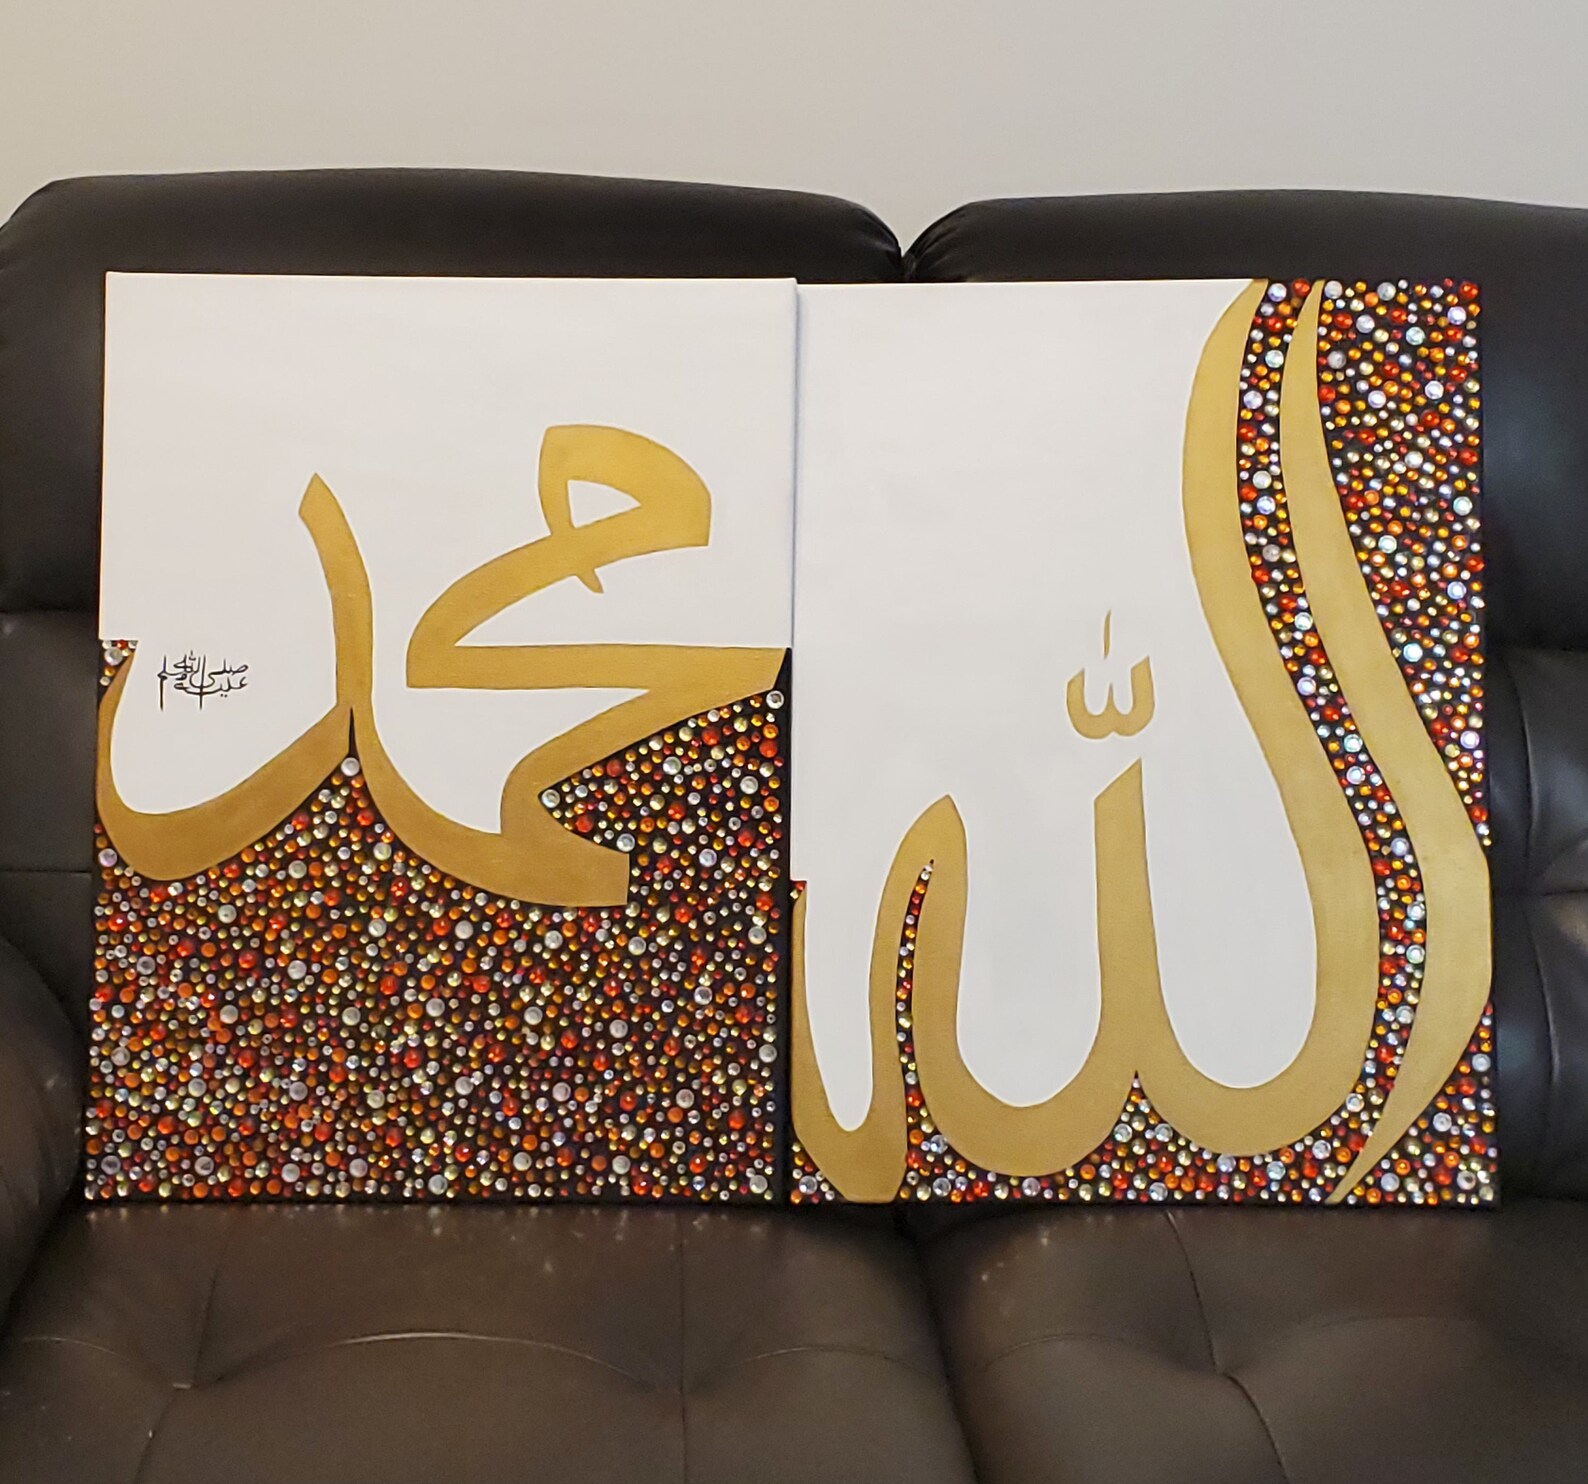 الله
محمد
صلى الله
عليه وسلم